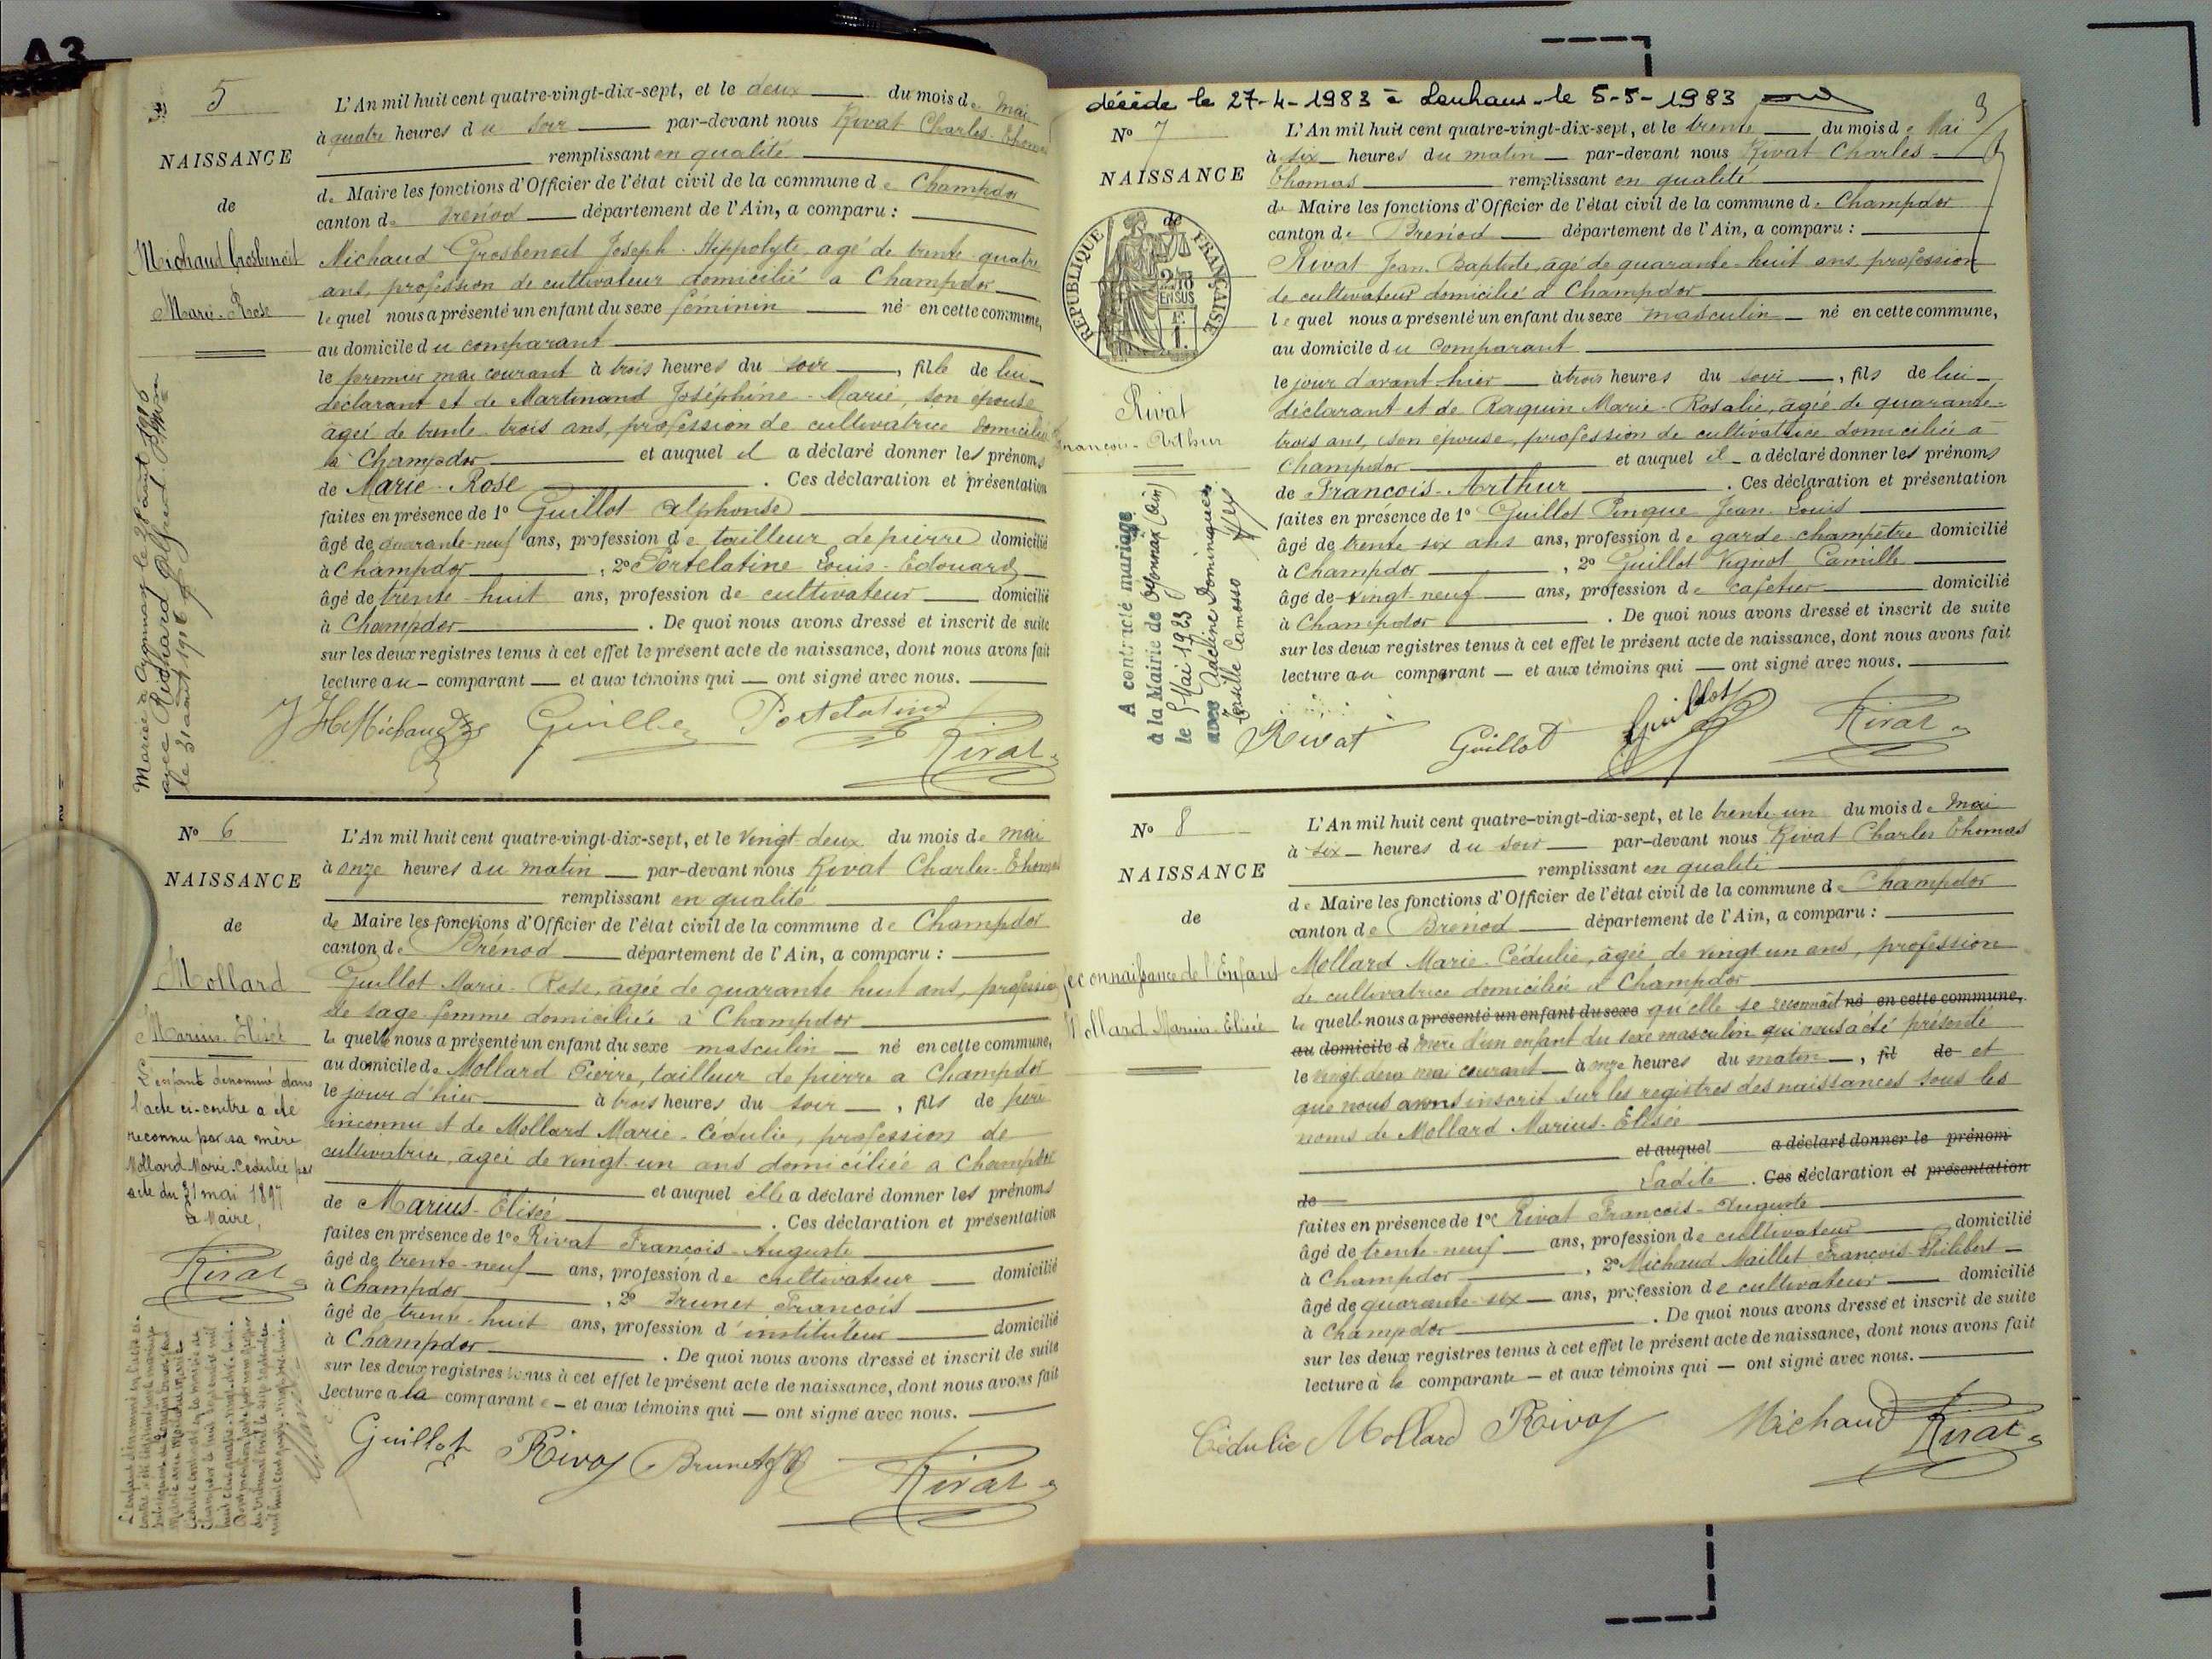 A3
5
NAISSANCE
de
Michaud Grosbenoit
Marie-Rose
Mariée à Oyonnax le 28 août 1916
avec Richard Alfred
le 31 août 1916
L'An mil huit cent quatre-vingt-dix-sept, et le deux du mois de Mai
à quatre heures du soir par-devant nous Rivat Charles-Thomas
remplissant en qualité
de Maire les fonctions d'Officier de l'état civil de la commune de Champdor
canton de Brénod département de l'Ain, a comparu :
Michaud Grosbenoit Joseph-Hippolyte, agé de trente-quatre
ans, profession de cultivateur domicilié à Champdor
lequel nous a présenté un enfant du sexe féminin né en cette commune,
au domicile du comparant
le premier mai courant à trois heures du soir, fille de lui
déclarant et de Martinand Joséphine-Marie, son épouse
âgée de trente-trois ans, profession de cultivatrice domiciliée
à Champdor et auquel il a déclaré donner les prénoms
de Marie-Rose. Ces déclaration et présentation
faites en présence de 1° Guillot Alphonse
âgé de quarante-neuf ans, profession de tailleur de pierre domicilié
à Champdor, 2° Portelatine Louis-Edouard
âgé de trente-huit ans, profession de cultivateur domicilié
à Champdor. De quoi nous avons dressé et inscrit de suite
sur les deux registres tenus à cet effet le présent acte de naissance, dont nous avons fait
lecture au comparant et aux témoins qui ont signé avec nous.
JH Michaud Guillot Portelatine
Rivat
N° 6
NAISSANCE
de
Mollard
Marius-Elisée
L'enfant dénommé dans
l'acte ci-contre a été
reconnu par sa mère
Mollard Marie-Cédulie par
acte du 31 mai 1897
Le Maire,
Rivat
L'An mil huit cent quatre-vingt-dix-sept, et le vingt deux du mois de mai
à onze heures du matin par-devant nous Rivat Charles-Thomas
remplissant en qualité
de Maire les fonctions d'Officier de l'état civil de la commune de Champdor
canton de Brénod département de l'Ain, a comparu :
Guillot Marie-Rose, âgée de quarante huit ans, profession
de sage-femme domiciliée à Champdor
laquelle nous a présenté un enfant du sexe masculin né en cette commune,
au domicile de Mollard Pierre, tailleur de pierre a Champdor
le jour d'hier à trois heures du soir, fils de père
inconnu et de Mollard Marie-Cédulie, profession de
cultivatrice, âgée de vingt-un ans domiciliée a Champdor
et auquel elle a déclaré donner les prénoms
de Marius-Elisée. Ces déclaration et présentation
faites en présence de 1° Rivat François-Auguste
âgé de trente-neuf ans, profession de cultivateur domicilié
à Champdor, 2° Brunet François
âgé de trente-huit ans, profession d'instituteur domicilié
à Champdor. De quoi nous avons dressé et inscrit de suite
sur les deux registres tenus à cet effet le présent acte de naissance, dont nous avons fait
lecture à la comparante et aux témoins qui ont signé avec nous.
Guillot Rivat Brunet
Rivat
décédé le 27-4-1983 à Louhans le 5-5-1983
3
N° 7
NAISSANCE
de
RÉPUBLIQUE FRANÇAISE
EN SUS
Rivat
François-Arthur
A contracté mariage
à la Mairie de Oyonnax (Ain)
le 5 Mai 1923
avec
L'An mil huit cent quatre-vingt-dix-sept, et le trente du mois de Mai
à six heures du matin par-devant nous Rivat Charles-
Thomas remplissant en qualité
de Maire les fonctions d'Officier de l'état civil de la commune de Champdor
canton de Brénod département de l'Ain, a comparu :
Rivat Jean-Baptiste, âgé de quarante-huit ans, profession
de cultivateur domicilié à Champdor
lequel nous a présenté un enfant du sexe masculin né en cette commune,
au domicile du comparant
le jour d'avant-hier à trois heures du soir, fils de lui
déclarant et de Raquin Marie-Rosalie, âgée de quarante-
trois ans, son épouse, profession de cultivatrice domiciliée à
Champdor et auquel il a déclaré donner les prénoms
de François-Arthur. Ces déclaration et présentation
faites en présence de 1° Guillot Pingue Jean-Louis
âgé de trente-six ans ans, profession de garde-champêtre domicilié
à Champdor, 2° Guillot Vignot Camille
âgé de vingt neuf ans, profession de cafetier domicilié
à Champdor. De quoi nous avons dressé et inscrit de suite
sur les deux registres tenus à cet effet le présent acte de naissance, dont nous avons fait
lecture au comparant et aux témoins qui ont signé avec nous.
Rivat Guillot Guillot Rivat
N° 8
NAISSANCE
de
reconnaissance de l'Enfant
Mollard Marius-Elisée
L'An mil huit cent quatre-vingt-dix-sept, et le trente-un du mois de Mai
à six heures du soir par-devant nous Rivat Charles Thomas
remplissant en qualité
de Maire les fonctions d'Officier de l'état civil de la commune de Champdor
canton de Brénod département de l'Ain, a comparu :
Mollard Marie-Cédulie, âgée de vingt un ans, profession
de cultivatrice domiciliée à Champdor
laquelle nous a présenté un enfant du sexe qu'elle se reconnaît né en cette commune,
au domicile d mère d'un enfant du sexe masculin qui nous a été présenté
le vingt deux mai courant à onze heures du matin, fil de et
que nous avons inscrit sur les registres des naissances sous les
noms de Mollard Marius-Elisée
et auquel a déclaré donner le prénom
de Ladite. Ces déclaration et présentation
faites en présence de 1° Rivat François-Auguste
âgé de trente-neuf ans, profession de cultivateur domicilié
à Champdor, 2° Michaud Maillet François-Philibert
âgé de quarante-six ans, profession de cultivateur domicilié
à Champdor. De quoi nous avons dressé et inscrit de suite
sur les deux registres tenus à cet effet le présent acte de naissance, dont nous avons fait
lecture à la comparante et aux témoins qui ont signé avec nous.
Cédulie Mollard Rivat Michaud Rivat